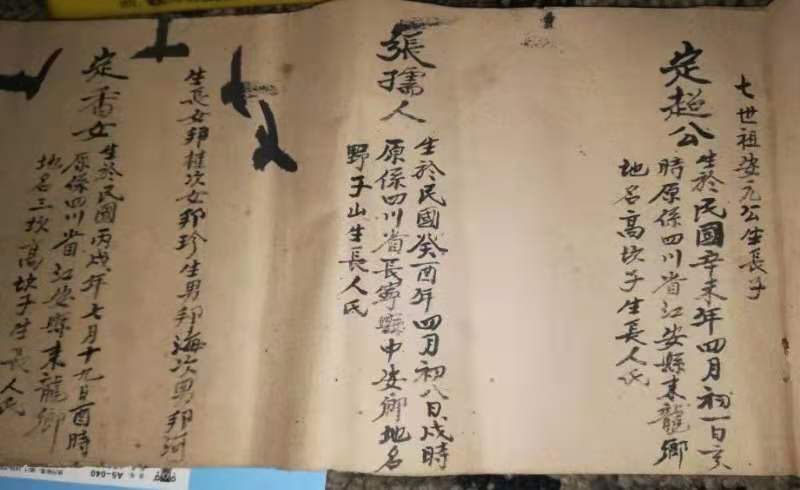 七世祖安元公生長子
定超公
生於民國辛未年四月初一日亥
時原係四川省江安縣來龍鄉
地名高坎子生長人氏
張孺人
生於民國癸酉年四月初八日戌時
原係四川省長寧縣中安鄉地名
野子山生長人氏
生長女邦桂次女邦珍生男邦海次男邦河
定香女
生於民國丙戌年七月十九日酉時
原係四川省江安縣來龍鄉
地名三坎高坎子生長人氏
A5-040